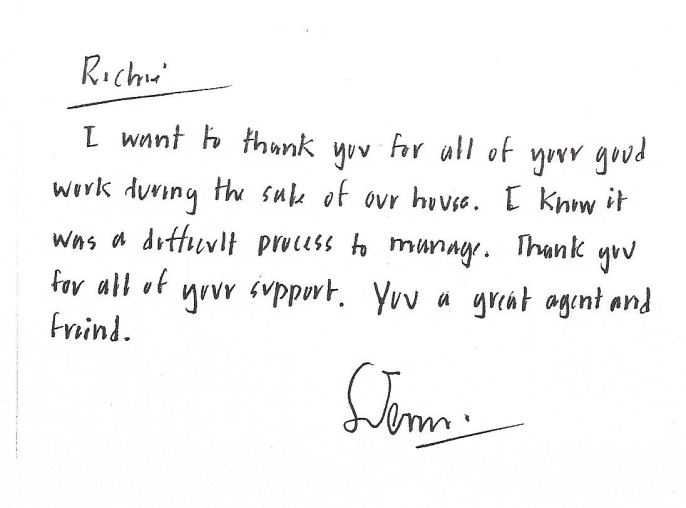 Richie
I want to thank you for all of your good
work during the sale of our house. I know it
was a difficult process to manage. Thank you
for all of your support. You a great agent and
freind.